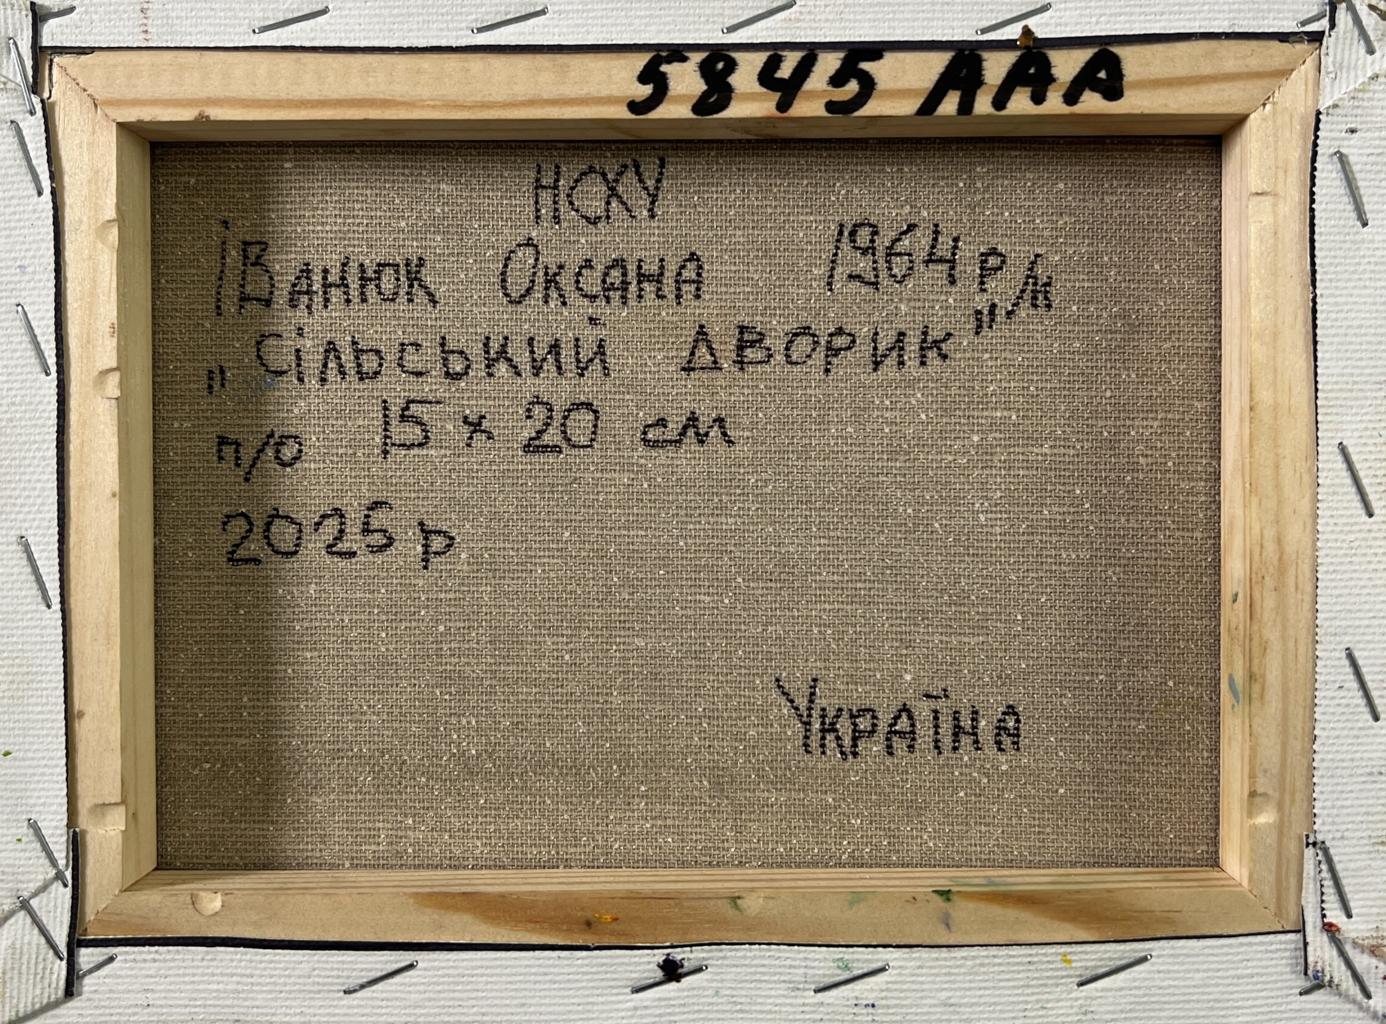 5845 AAA
НСХУ
Іванюк Оксана 1964 р/н
„Сільський дворик”
п/о 15 х 20 см
2025 р
Україна